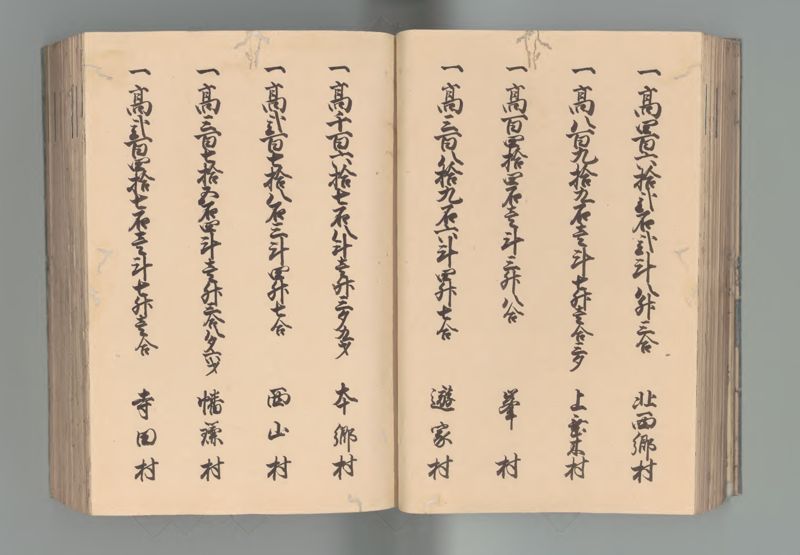 一高四百六拾弐石弐斗八升三合 北西郷村
一高八百九拾九石壱斗七升壱合三夕 上垂木村
一高百四拾四石壱斗三升八合 峯村
一高三百八拾九石六斗四升七合 遊家村
一高千百六拾七石八斗壱升三夕九才 本郷村
一高弐百七拾八石三斗四升七合 西山村
一高三百七拾五石四斗壱升三合八夕六才 幡鎌村
一高弐百四拾七石壱斗七升壱合 寺田村